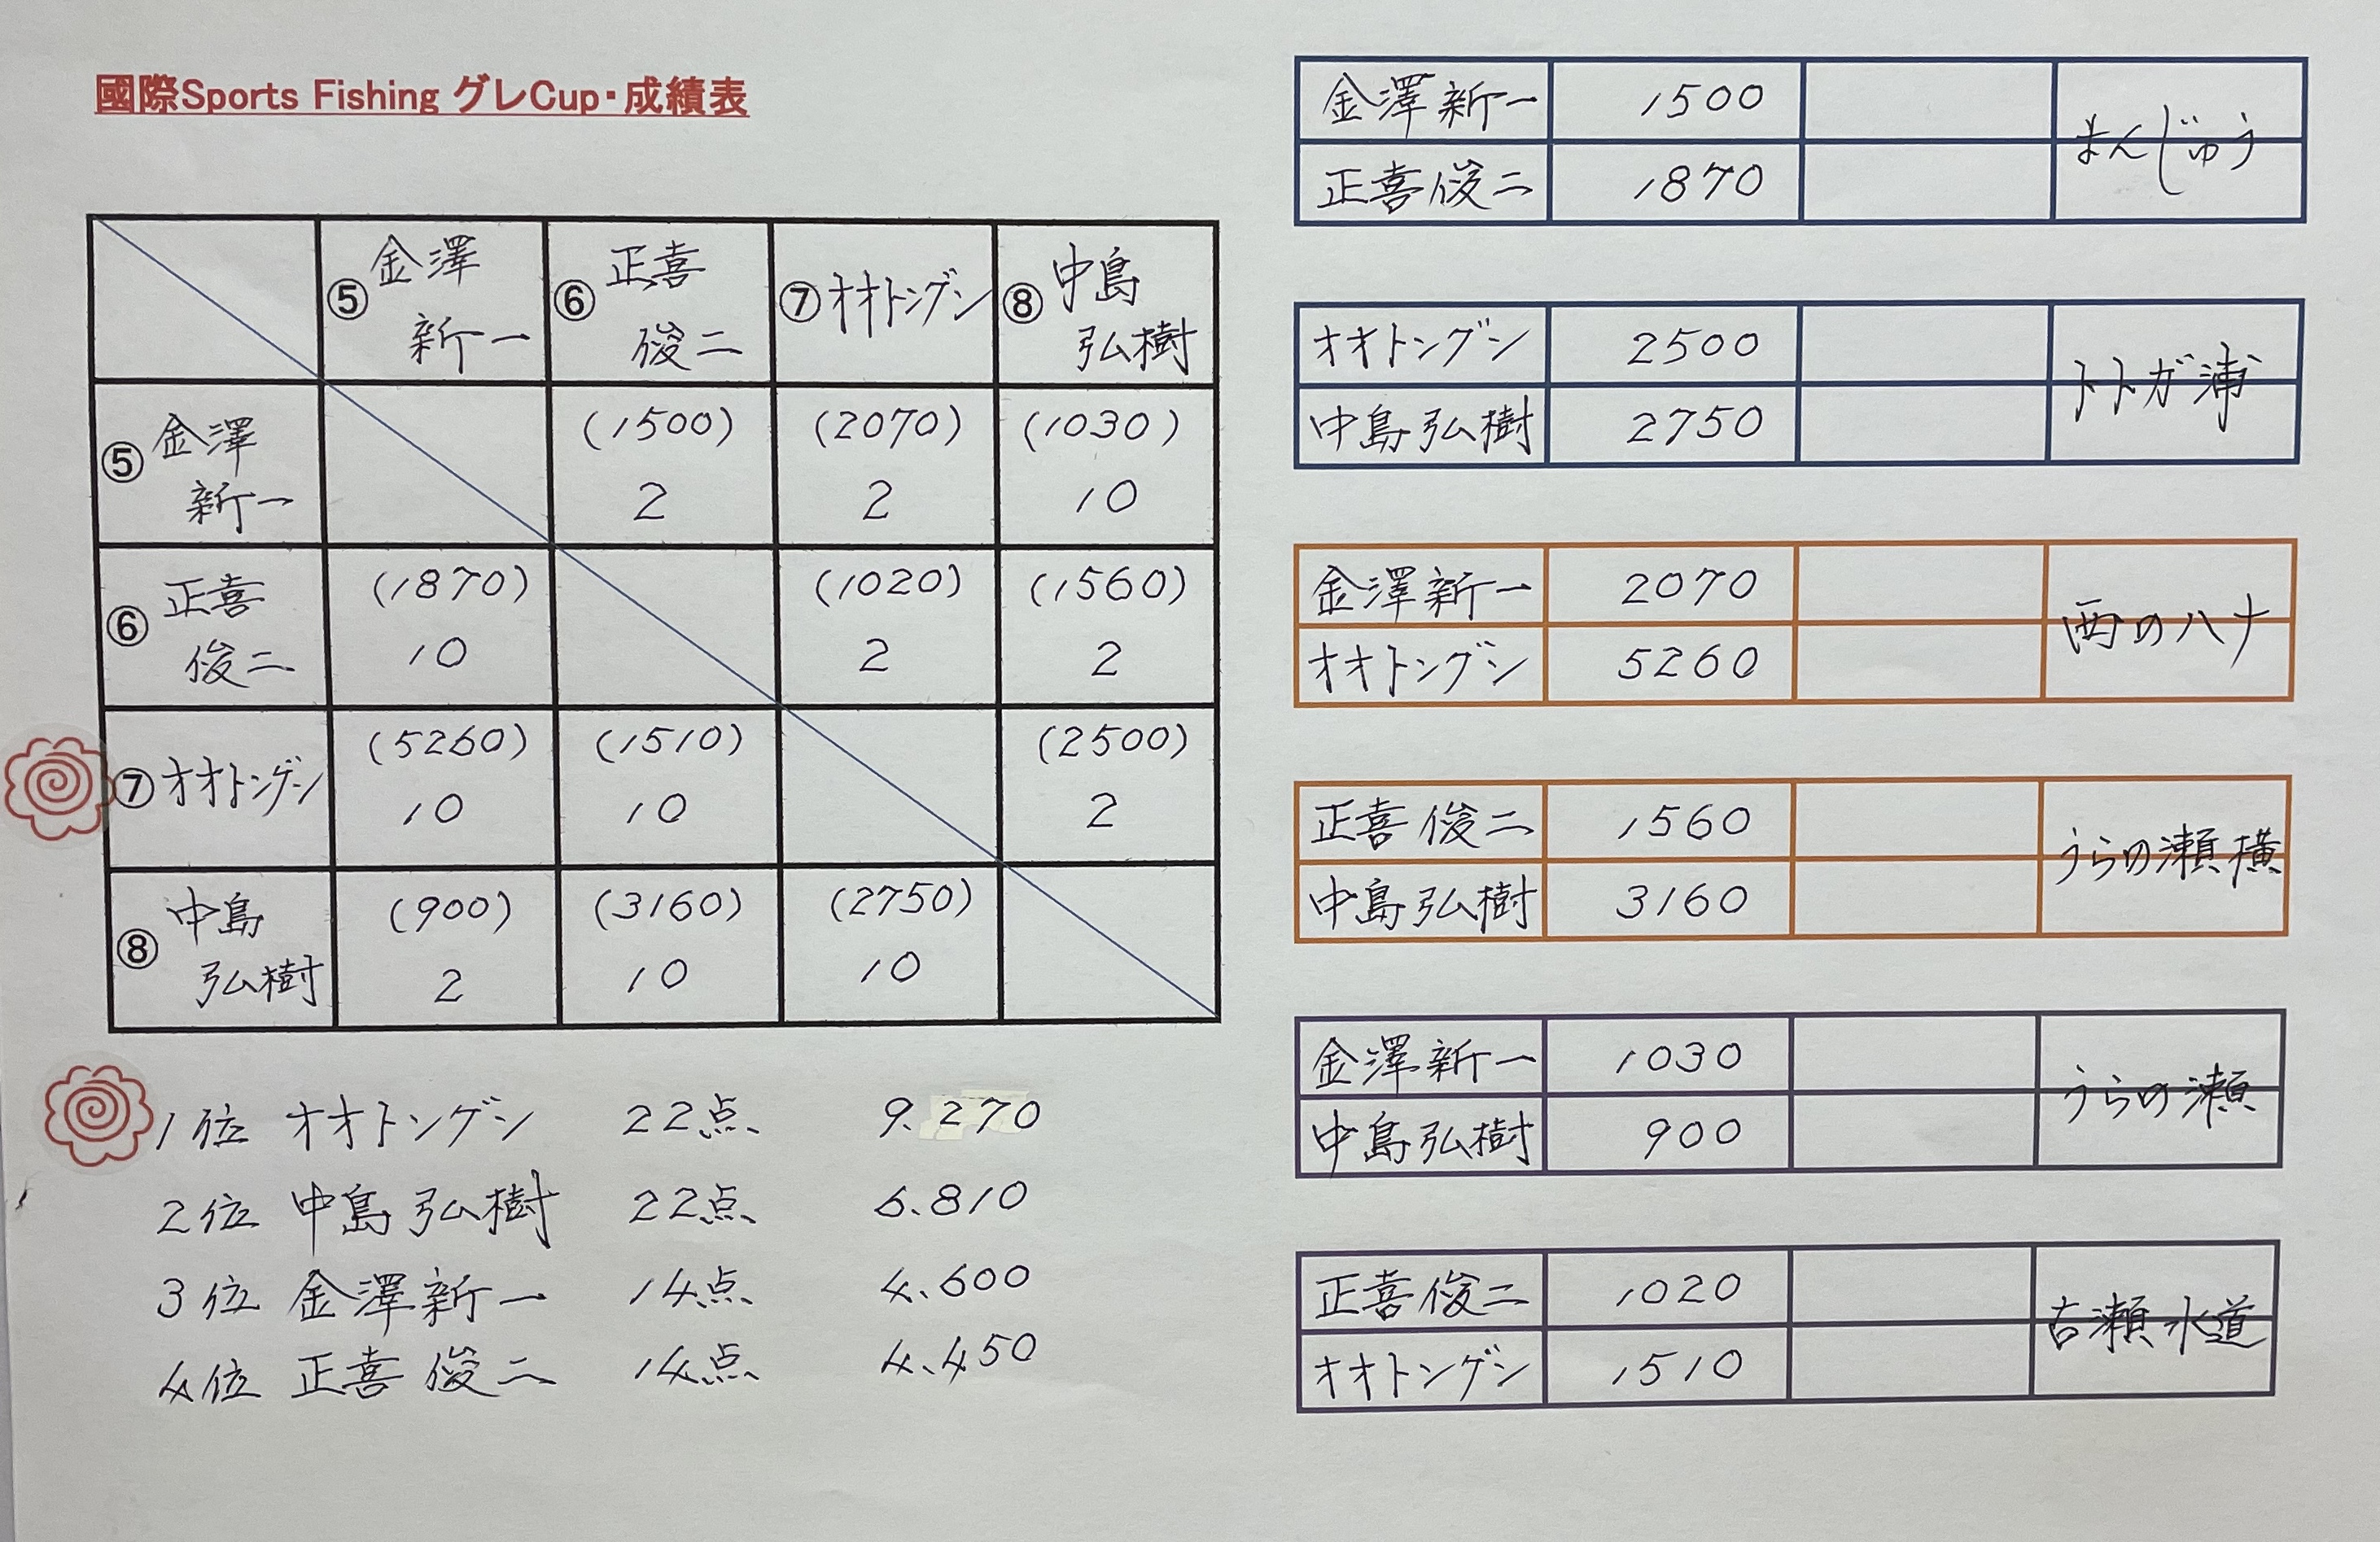 國際Sports Fishing グレCup・成績表
⑤ 金澤 新一 ⑥ 正喜 俊二 ⑦ オオトングン ⑧ 中島 弘樹
⑤ 金澤 新一 (1500) 2 (2070) 2 (1030) 10
⑥ 正喜 俊二 (1870) 10 (1020) 2 (1560) 2
⑦ オオトングン (5260) 10 (1510) 10 (2500) 2
⑧ 中島 弘樹 (900) 2 (3160) 10 (2750) 10
1位 オオトングン 22点 9.270
2位 中島 弘樹 22点 6.810
3位 金澤 新一 14点 4.600
4位 正喜 俊二 14点 4.450
金澤 新一 1500
まんじゅう
正喜 俊二 1870
オオトングン 2500
トトガ浦
中島 弘樹 2750
金澤 新一 2070
西のハナ
オオトングン 5260
正喜 俊二 1560
うらの瀬 横
中島 弘樹 3160
金澤 新一 1030
うらの瀬
中島 弘樹 900
正喜 俊二 1020
古瀬 水道
オオトングン 1510